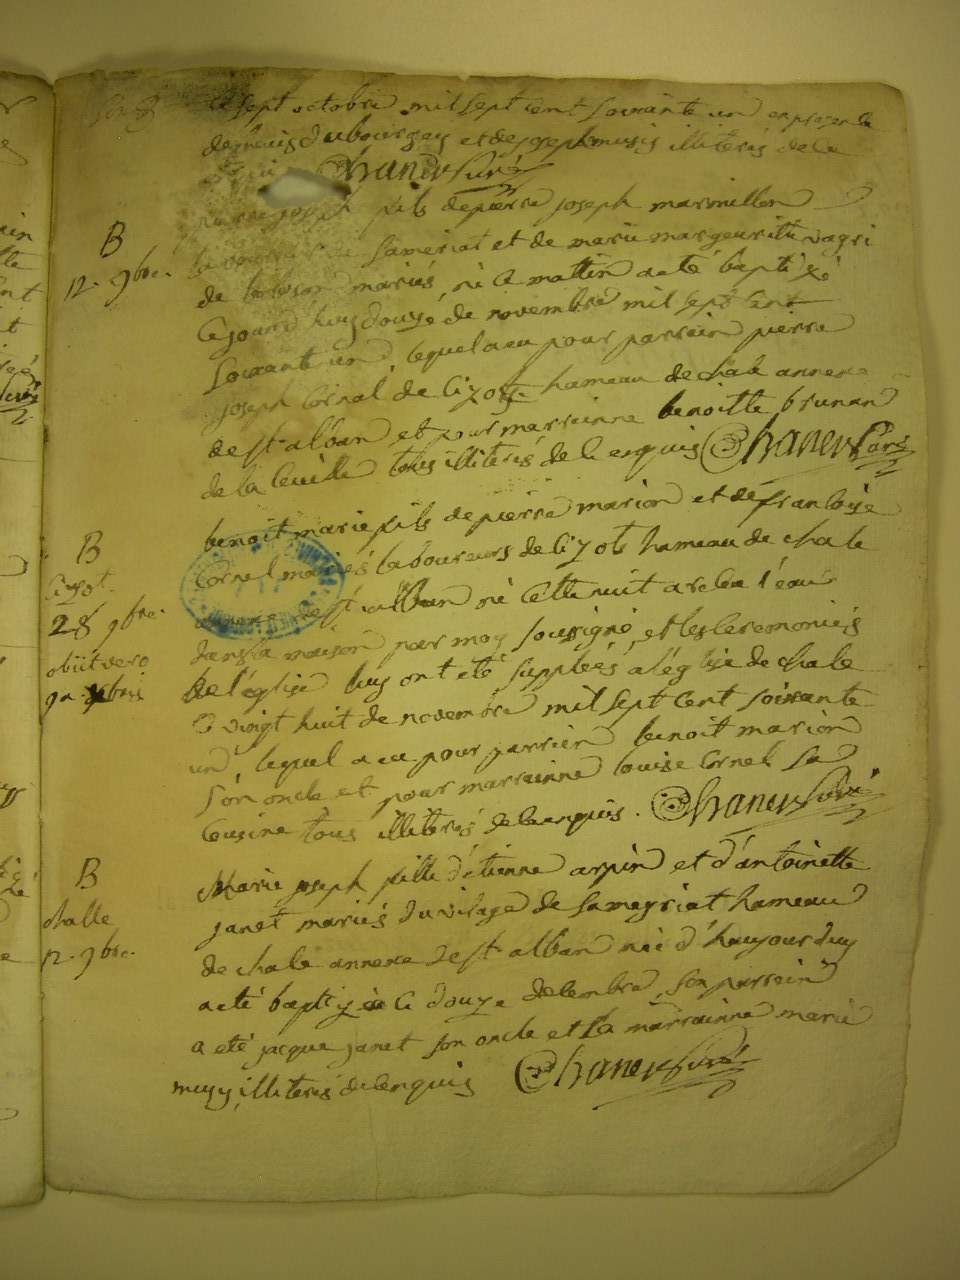 Le sept octobre mil sept cent soixante un en presence
de denis dubourgey et de joseph illiterés de ce
Chaney curé
B
12. 9bre.
pierre joseph fils de pierre joseph marmillon
laboureur de Sameriat et de marie margeuritte
de mariés, né ce mattin a eté baptisé
ce jourd huy douze de novembre mil sept cent
soixante un, lequel a eu pour parrein pierre
joseph Cornal de Cizot hameau de chale annexe
de st alban et pour marrainne benoitte brunan
de la tous illiterés de ce enquis Chaney Curé
B
Cizot
28 9bre.
obiit vero
benoit marie fils de pierre marion et de francoise
Cornel mariés laboureurs de Cizot hameau de chale
annexe de st alban né cette nuit a recu l'eau
dans la maison par moy soussigné, et les ceremonies
de l'église luy ont eté supplées a l'église de chale
ce vingt huit de novembre mil sept cent soixante
un, lequel a eu pour parrein benoit marion
son oncle et pour marrainne louise Cornel sa
Cousine tous illiterés de ce enquis. Chaney Curé
B
challe
12. 9bre.
Marie joseph fille d'étienne arpin et d'antoinette
janet mariés du vilage de Sameyriat hameau
de chale annexe de st alban née d'haujourduy
a eté baptizée ce douze decembre, son parrein
a eté jacque janet son oncle et sa marrainne marie
illiterés de ce enquis Chaney Curé